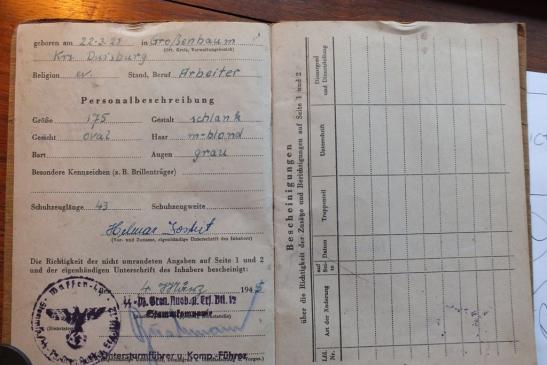 geboren am 22.3.28 in Großenbaum
(Ort, Kreis, Verwaltungsbezirk)
Krs. Duisburg
Religion ev. Stand, Beruf Arbeiter
Personalbeschreibung
Größe 175 Gestalt schlank
Gesicht oval Haar m-blond
Bart Augen grau
Besondere Kennzeichen (z. B. Brillenträger)
Schuhzeuglänge 43 Schuhzeugweite
Helmar
(Vor- und Zuname, eigenhändige Unterschrift des Inhabers)
Die Richtigkeit der nicht umrandeten Angaben auf Seite 1 und 2
und der eigenhändigen Unterschrift des Inhabers bescheinigt:
4. März 1945
Stammkompanie
Untersturmführer u. Komp.-Führer
Bescheinigungen
über die Richtigkeit der Zusätze und Berichtigungen auf Seite 1 und 2
Dienstgrad und Dienststellung
Unterschrift
Truppenteil
Datum
auf Seite
Art der Änderung
Lfd. Nr.